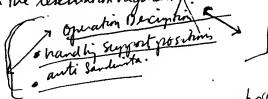 Operation Deception
• handling support positions
• anti Sandinista.